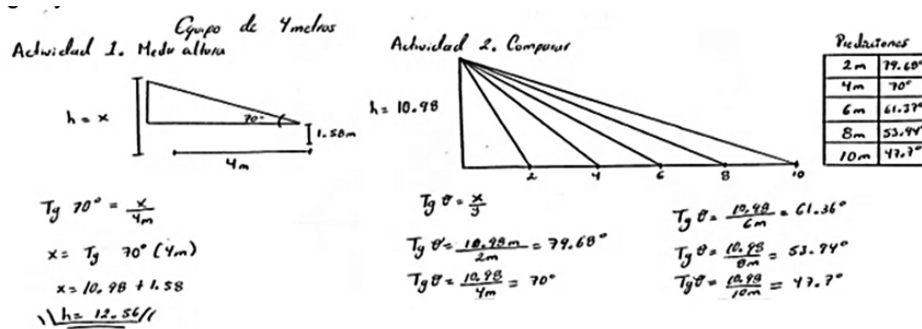 Equipo de 4 metros
Actividad 1. Medir altura
h = x
70°
1.58m
4m
Tg 70° = x/4m
x = Tg 70° (4m)
x = 10.98 + 1.58
\\ h = 12.56 //
Actividad 2. Comparar
h = 10.98
2 4 6 8 10
Tg θ = x/y
Tg θ = 10.98m/2m = 79.68°
Tg θ = 10.98/4m = 70°
Tg θ = 10.98/6m = 61.36°
Tg θ = 10.98/8m = 53.94°
Tg θ = 10.98/10m = 47.7°
Predictiones
2m 79.68°
4m 70°
6m 61.37°
8m 53.94°
10m 47.7°